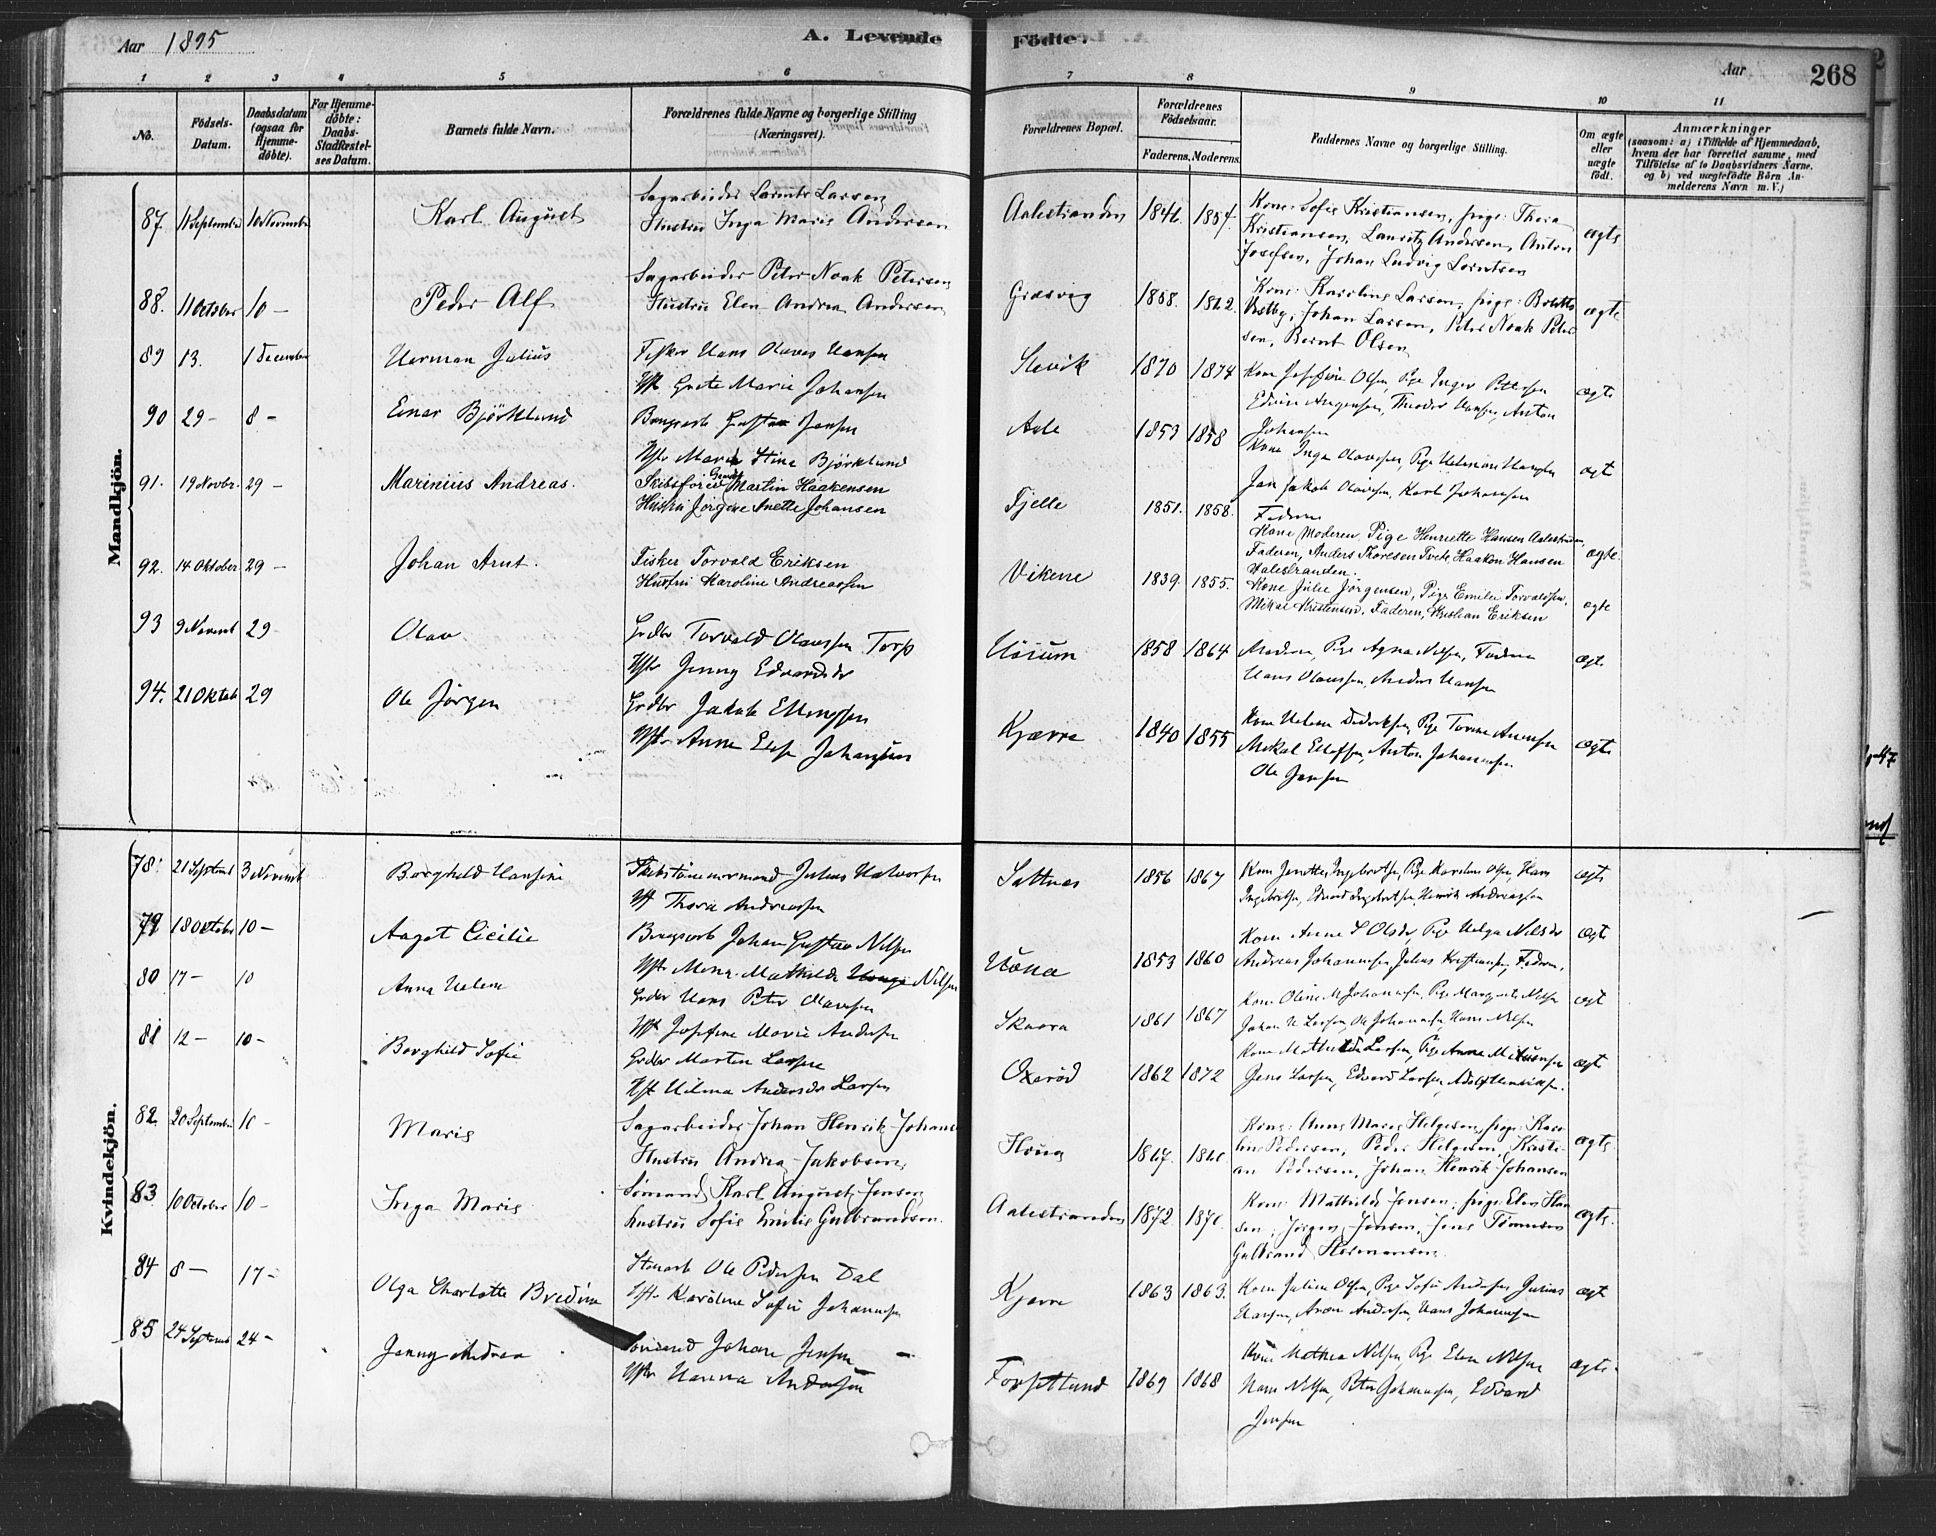 Aar 1895
A. Levende Födte.
Aar
268
1 2 3 4 5 6 7 8 9 10 11
No.
Födsels-Datum.
Daabsdatum (ogsaa for Hjemme-döbte).
For Hjemme-döbte: Daabs-Stadfæstel-ses Datum.
Barnets fulde Navn.
Forældrenes fulde Navne og borgerlige Stilling (Næringsvei).
Forældrenes Bopæl.
Forældrenes Födselsaar.
Faderens. Moderens.
Faddernes Navne og borgerlige Stilling.
Om ægte eller uægte födt.
Anmærkninger
(saasom: a) i Tilfælde af Hjemmedaab,
hvem der har forrettet samme, med
Tilföielse af to Daabsvidners Navne.
og b) ved uægtefödte Börn An-
melderens Navn m. V.)
Mandkjön.
87. 11 September 10 November Karl August
Sagarbeider Larents Larsen
Hustru Inga Marie Andersen
Aalestranden 1846. 1854.
Kone: Sofie Kristiansen, pige: Thora
Kristiansen, Lauritz Andersen, Anton
Josefsen, Johan Ludvig Lorntsen
ægte
88. 11 October 10 — Peder Alf
Sagarbeider Peter Noak Petersen
Hustru Elen Andrea Andersen
Græsvig 1858. 1862.
Kone: Karoline Larsen, pige: Bolette
Vestby, Johan Larsen, Peter Noak Peter
sen, Bernt Olsen
ægte
89 13. 1 December Herman Julius
Fisker Hans Olaves Hansen
Hst Grete Marie Johansen
Slevik 1870 1874
Kone Josefine Olsen, Pige Inger Pettersen
Edvin Angensen, Theodor Hansen, Anton
Johansen
ægte
90 29 - 8 - Einar Björklund
Gustav Jensen
Hstr Maria Stina Björklund
Aale 1853 1858
Kone Inga Olavesen, Pige
Jan Jakob Olavesen, Karl Johansen
Faderen
ægt
91. 19 Novbr. 29 - Marinius Andreas.
Skibsfører Martin Haakensen
Hustru Jørgine Anette Johansen
Fjelle 1851. 1858.
Kone Moderen, Pige Henriette Hansen Aalestranden,
Faderen, Anders Karelsen Tvete, Haakon Hansen
Aalestranden.
ægte
92. 14 Oktober 29 - Johan Arnt.
Fisker Torvald Eriksen
Hustru Karoline Andreassen
Vikene 1839. 1855.
Kone Julie Jörgensen, Pige Emilie Torvaldsen,
Mikal Kristensen, Faderen, Kristian Eriksen
ægte
93 9 Novemb 29 - Olav
Grdbr Torvald Olaussen Torp
Hstr Jenny Edvardsdr
Uörum 1858 1864
Moderen, Pige Agna Nilsen, Faderen
Hans Olaussen, Anders Hansen
ægt.
94. 21 Oktob 29 Ole Jörgen
Grdbr Jakob Ellingsen
Hstr Anne Else Johansen
Kjærre 1840 1855
Kone Helene Didriksen, Pige Torine Arensen
Mikal Ellefsen, Anton Johannesen
Ole Jensen
ægte
Kvindekjön.
78. 21 Septemb 3 Novemb Borghild Hansine
Skibstømmermand Julius Halvorsen
Hst Thora Andreassen
Saltnes 1856 1867
Kone Jenette Ingebretsen, Pige Karoline Olsen, Hans
Ingebretsen, Edvard Ingebretsen, Henrik Andreassen
ægte
79 18 October 10 - Aagot Cicilie
Johan Gustav Nilsen
Hst Mina Mathilde Nilsen
Höna 1853 1860
Kone Anne S Olsdr, Pige Helga Nilsdr
Andreas Johannesen, Julius Kristiansen, Faderen.
ægte
80 17 - 10 Anna Helene
Grdbr Hans Peter Olavesen
Hst Josefine Marie Andersen
Skaara 1861 1867
Kone Oline M Johannesen, Pige Margrete Nilsen
Johan H Larsen, Ole Johannesen Hans Nilsen
ægt
81 12 - 10 - Borghild Sofie
Grdbr Martin Larsen
Hst Hilma Andersdr Larsen
Oxerød 1862 1872
Kone Mathilde Larsen, Pige Anna Mikkelsen
Jens Larsen, Edvard Larsen, Adolf Henriksen.
ægt
82. 20 September 10 - Marie
Sagarbeider Johan Henrik Johans
Hustru Andrea Jakobsen
Houg 1867. 1866.
Kone: Anne Marie Helgesen, pige: Karo
line Pedersen, Peder Helgesen, Kristi-
an Pedersen, Johan Henrik Johansen
ægte.
83 10 October 10 - Inga Marie
Sømand Karl August Jensen
hustru Sofie Emilie Gulbrandsen.
Aalestranden 1872. 1876.
Kone: Mathilde Jensen, pige: Elen Han
sen, Jørgen Jensen, Jens Tönnesen
Gulbrand Hermansen.
ægte.
84 8 - 17 - Olga Charlotte Bredine
Stenarb Ole Pedersen Dal
Hstr Karoline Sofie Johannesen
Kjærre 1863 1863.
Kone Juline Olsen, Pige Sofie Andersen, Julius
Hansen, Aron Andersen, Hans Johannesen
ægt
85 24 Septemb 24 - Jenny Andrea
Johan Jensen
Hstr Hanna Andersen
Forsetlund 1869 1868
Kone Mathea Nilsen, Pige Elen Nilsen
Hans Nilsen, Peter Johannesen, Edvard
Jensen
ægte